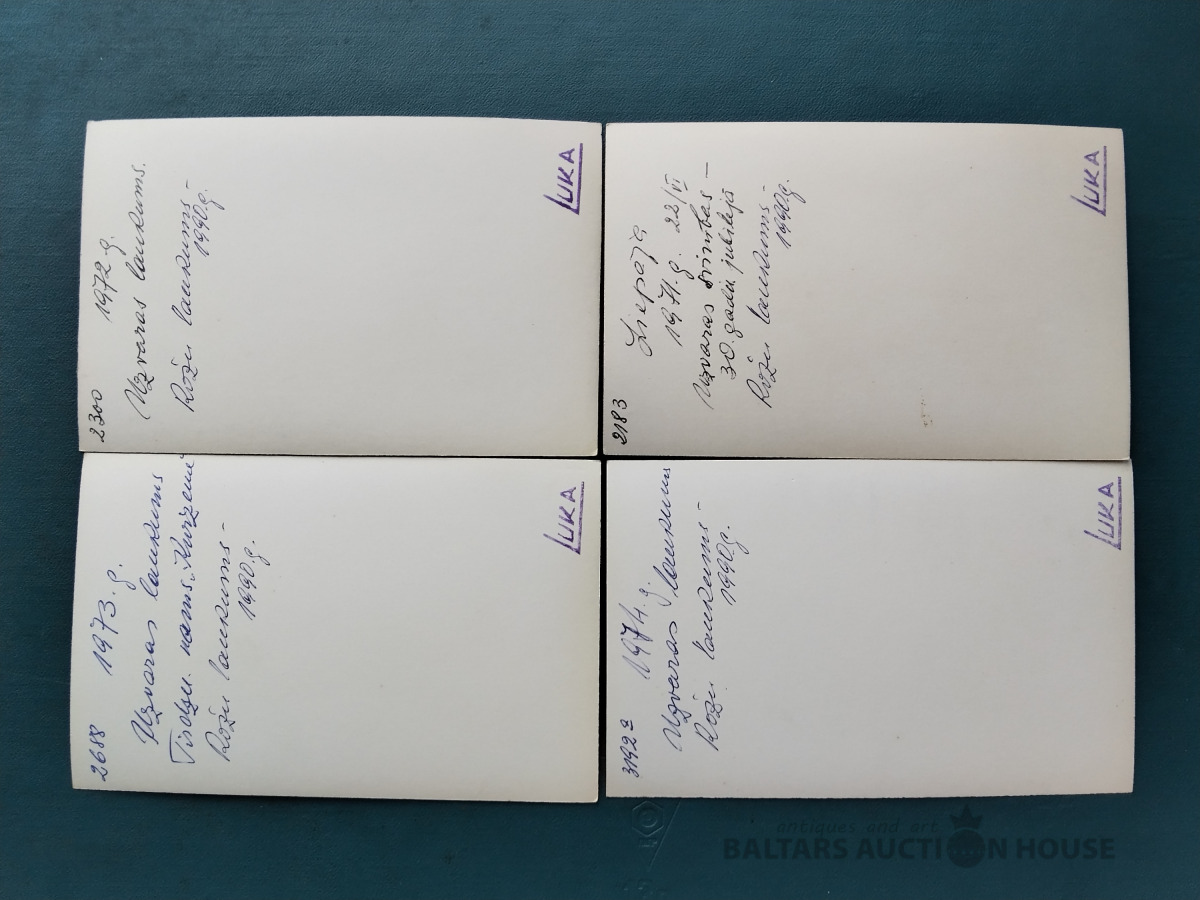 2300
1972 g.
Uzvaras laukums.
Rožu laukums -
1990.g.
LUKA
2183
Liepāja
1971.g. 22/VI
Uzvaras svinības –
30.gadu jubilejā
Rožu laukums -
1990.g.
LUKA
2688
1973. g.
Uzvaras laukums
Tirdzn. nams „Kurzeme"
Rožu laukums -
1990.g.
LUKA
1974.g.
Uzvaras laukums
Rožu laukums -
1990.g.
LUKA
antiques and art
BALTARS AUCTION HOUSE